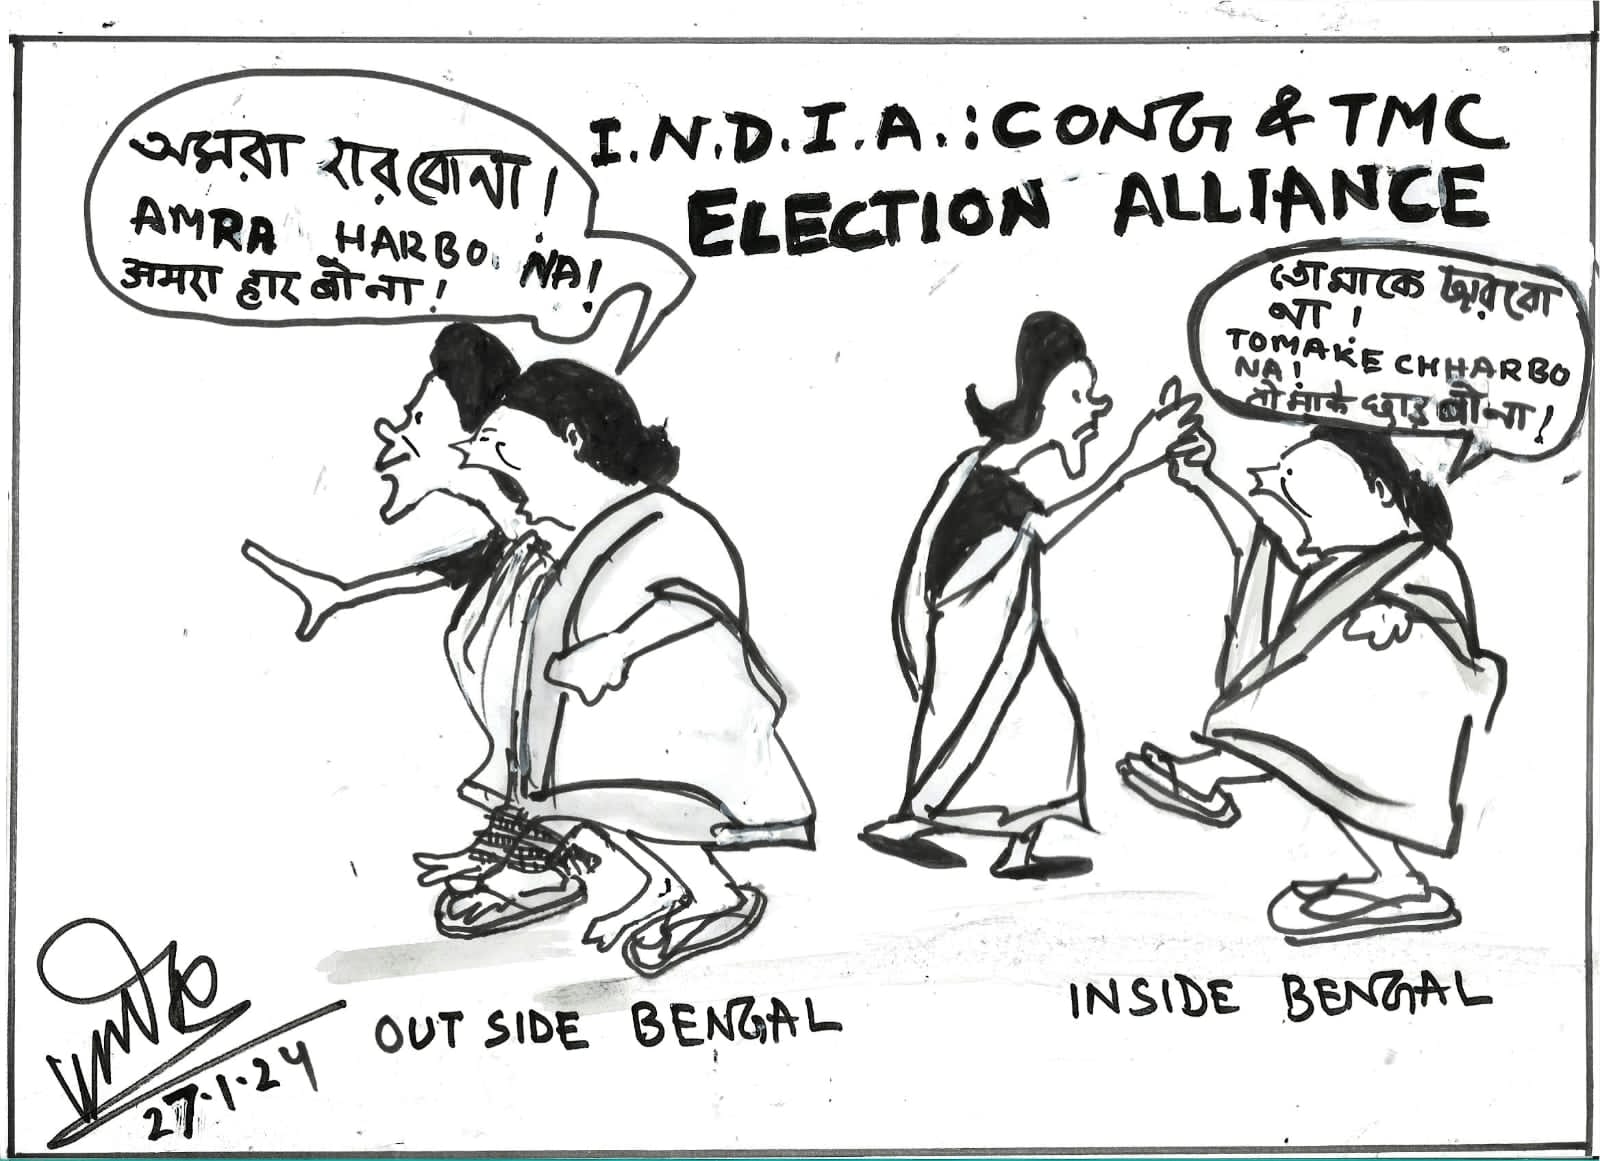 I.N.D.I.A.:CONG & TMC
ELECTION ALLIANCE
অমরা হারবোনা!
AMRA HARBO NA!
अमरा हार बो ना!
তোমাকে ছারবো
না!
TOMAKE CHHARBO
NA!
तोमाके छार बो ना!
OUT SIDE BENGAL
INSIDE BENGAL
27.1.24